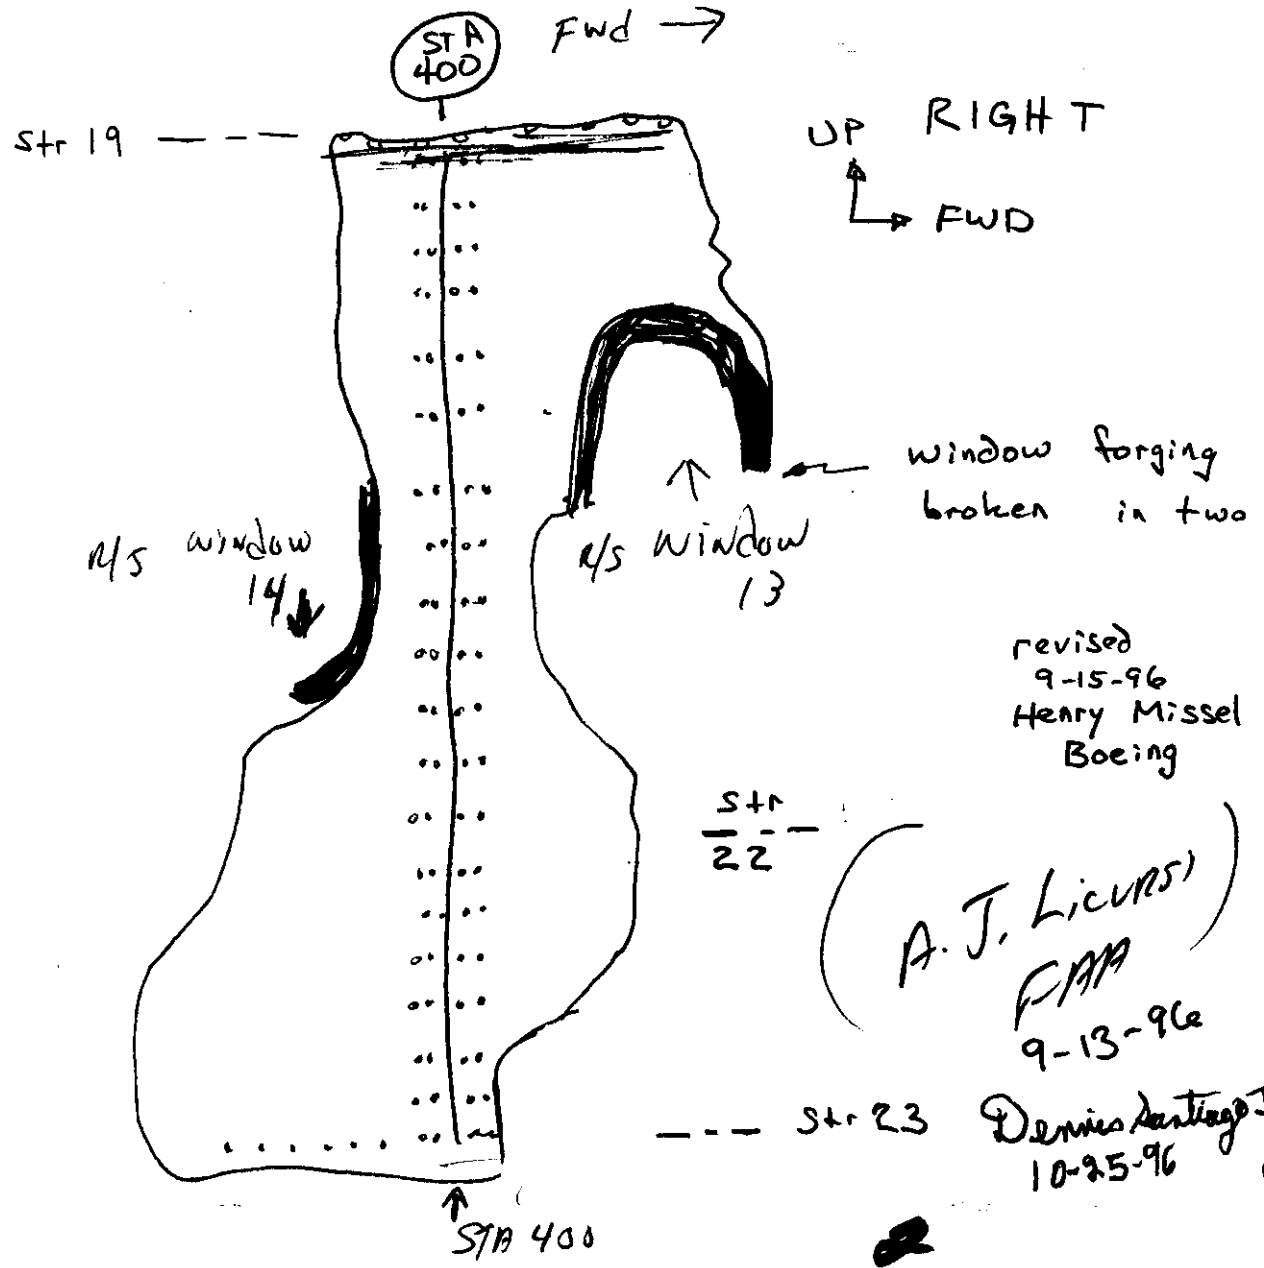 STA
400
Fwd
Str 19
RIGHT
UP
FWD
window forging
broken in two
R/S window
14
R/S WINDOW
13
revised
9-15-96
Henry Missel
Boeing
Str
22
A. J. Licursi
FAA
9-13-96
Str 23
Dennis Santiago
10-25-96
STA 400